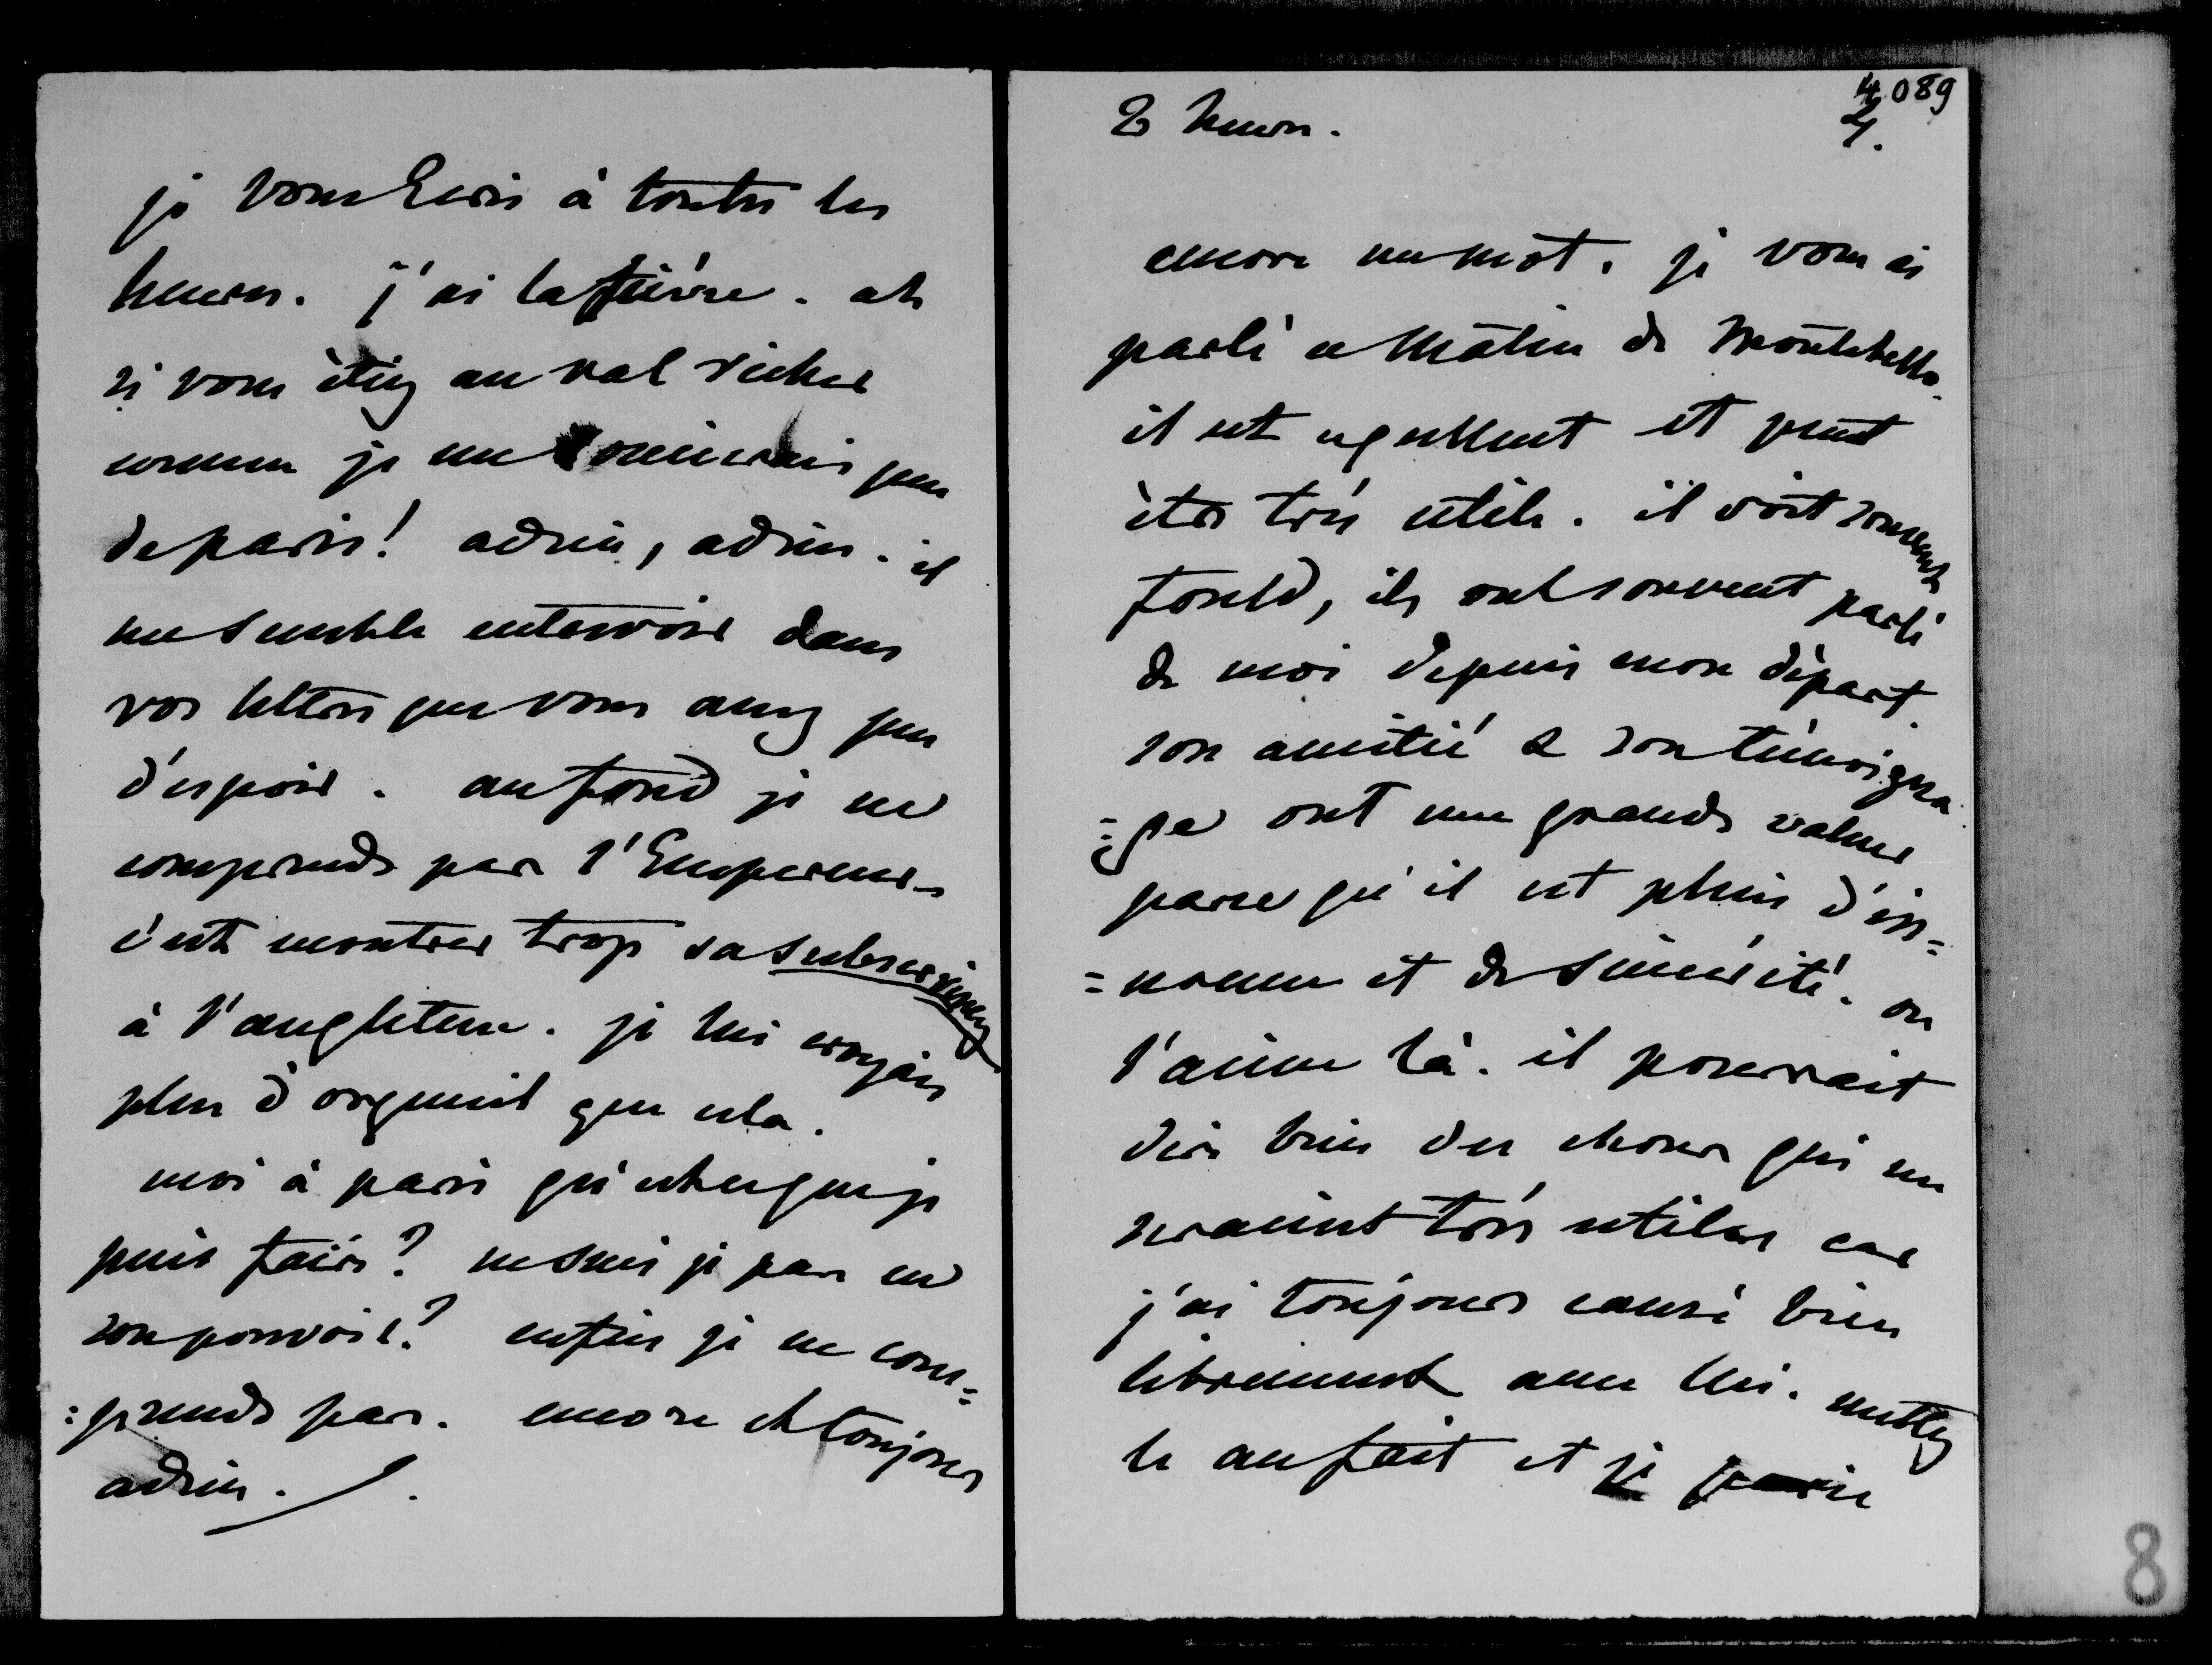 je vous écris à toutes les
heures. j'ai la fièvre. ah
si vous étiez au val richer
comme je me soucierais peu
de paris! adieu, adieu. il
me semble entrevoir dans
vos lettres que vous avez peu
d'espoir. au fond je ne
comprends pas l'Empereur.
c'est montrer trop sa subserviency
à l'angleterre. je lui croyais
plus d'orgueil que cela.
moi à paris qu'est-ce que je
puis faire? ne suis je pas en
son pouvoir? enfin je ne com=
=prends pas. encore et toujours
adieu.
4089
4.
8 heures.
encore un mot. je vous ai
parlé ce matin de Montebello.
il est excellent et peut
être très utile. il voit souvent
fould, ils ont souvent parlé
de moi depuis mon départ.
son amitié & son témoigna
=ge ont une grande valeur
parce qu'il est plein d'hon=
=neur et de sincérité. on
l'aime là. il pourrait
dire bien des choses qui me
seraient très utiles car
j'ai toujours causé bien
librement avec lui. mettez
le au fait et je
8